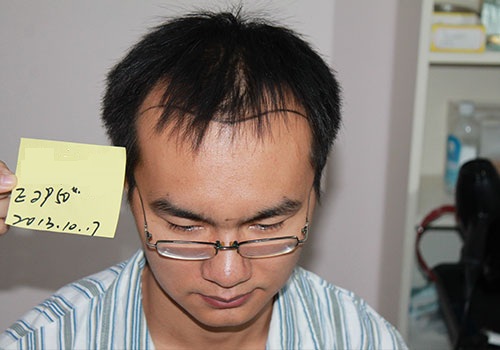 Z2950
2013.10..7